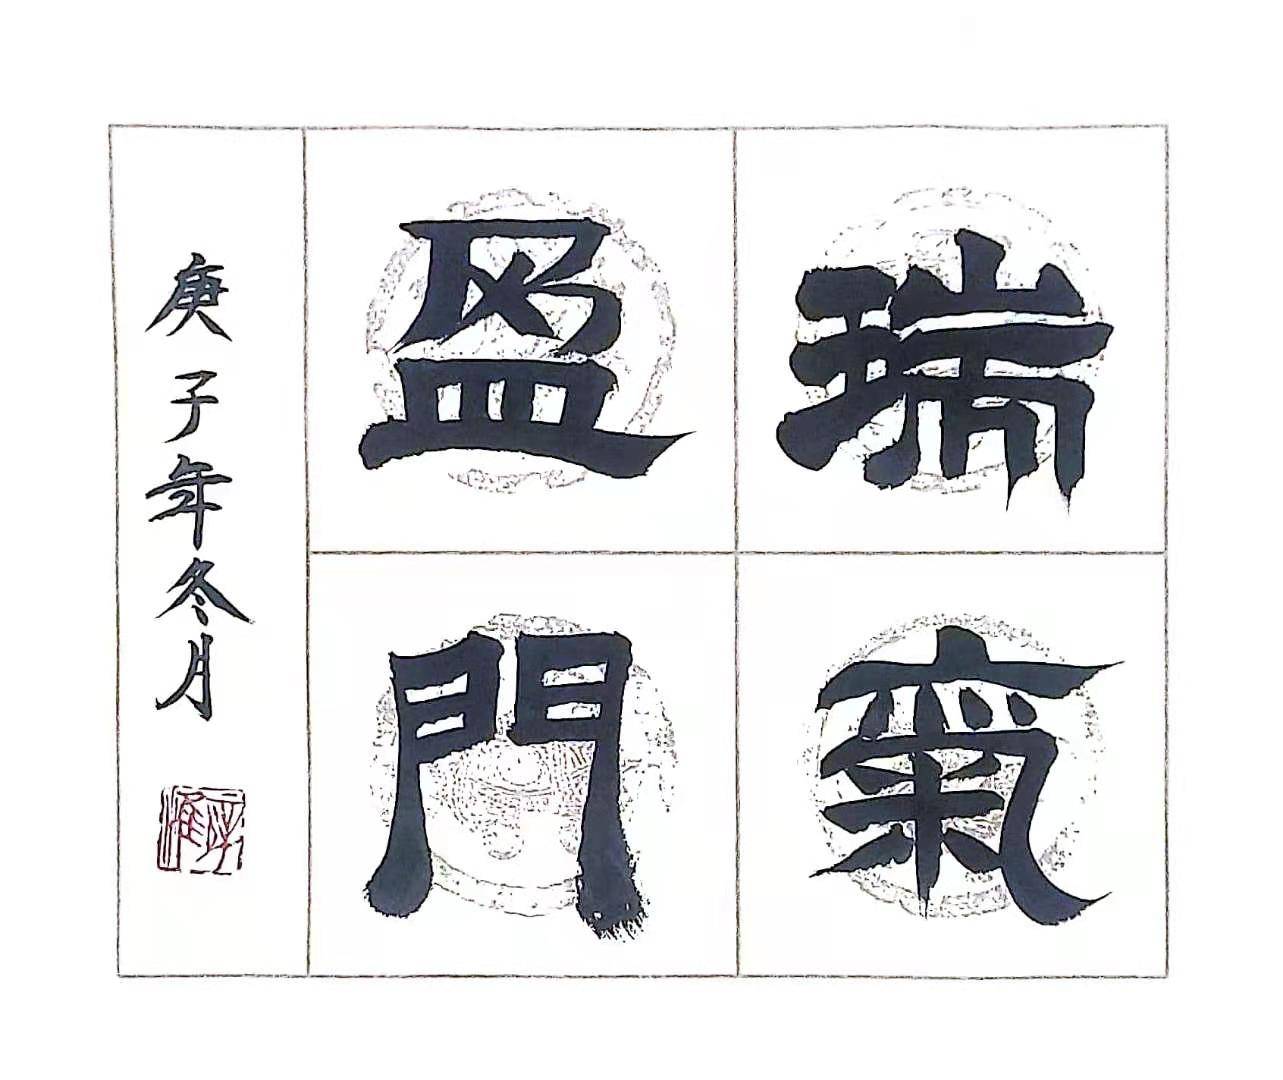 瑞氣
盈門
庚子年冬月